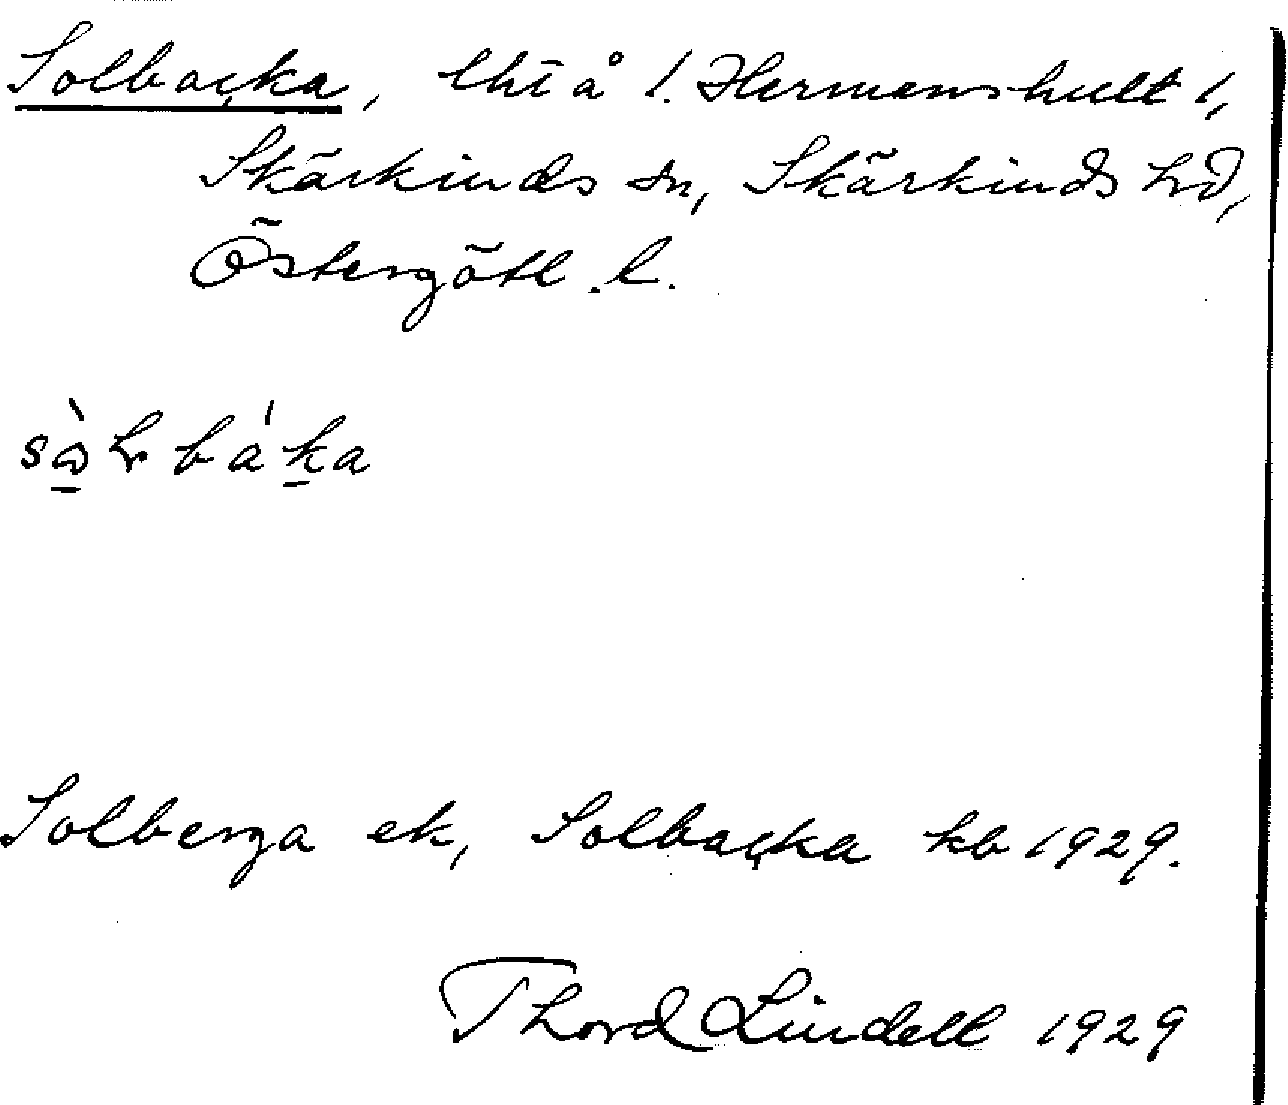 Solbacka, lht å 1. Hermanshult 1,
Skärkinds sn, Skärkinds hd,
Östergötl. l.
Solberga ek, Solbacka kb 1929.
Thord Lindell 1929